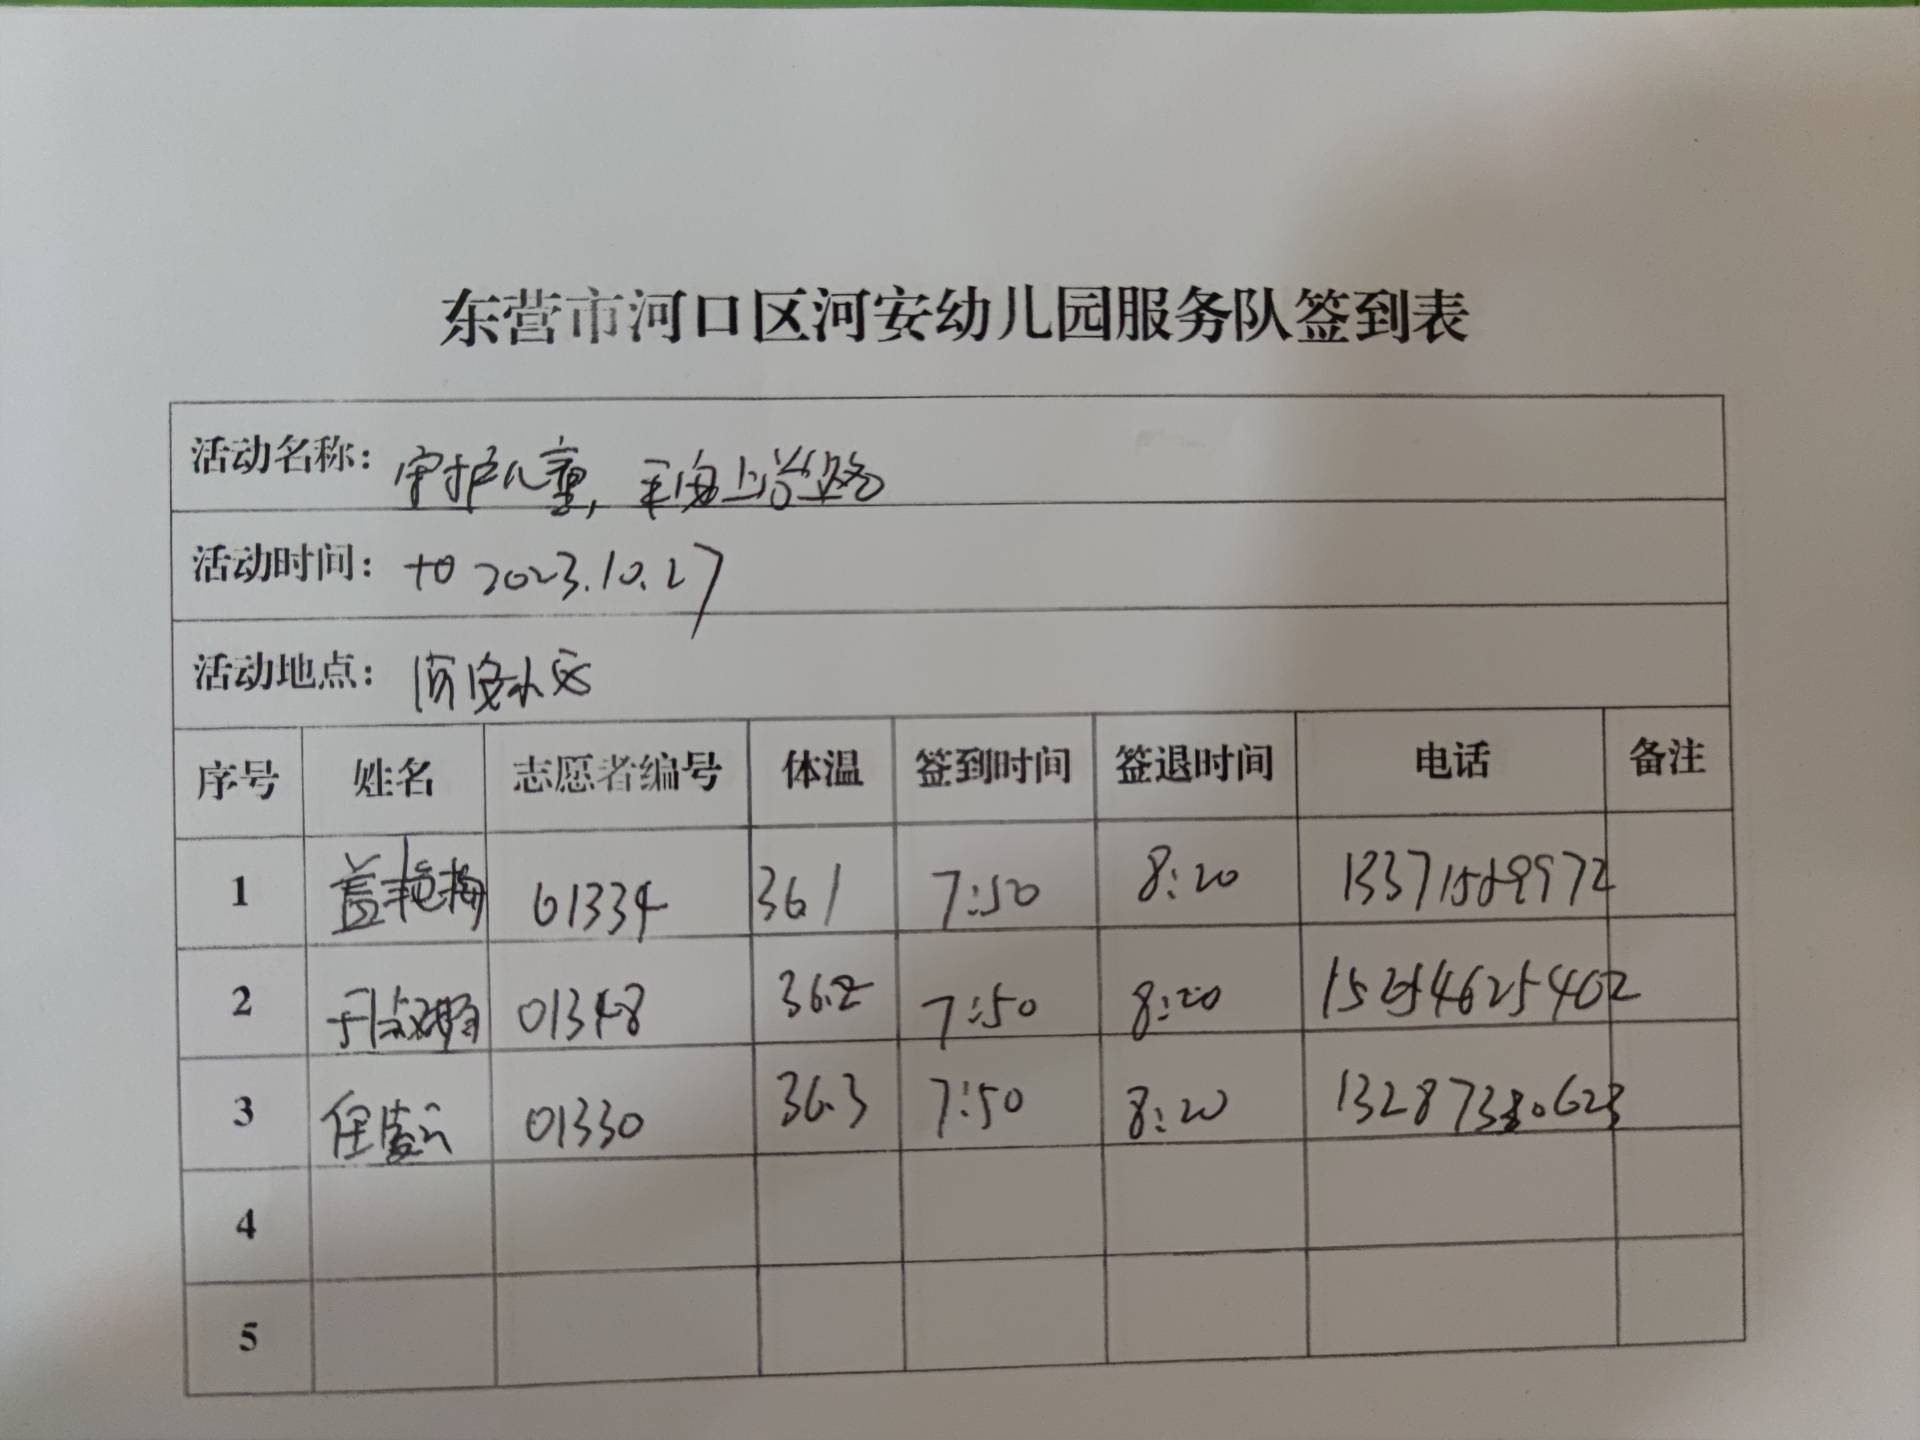 东营市河口区河安幼儿园服务队签到表
活动名称: 守护儿童, 平安上学路
活动时间: 2023.10.27
活动地点: 河安小区
序号 姓名 志愿者编号 体温 签到时间 签退时间 电话 备注
1 盖艳梅 01334 36.1 7:50 8:20 13371589972
2 01348 36.2 7:50 8:20 15254625402
3 01330 36.3 7:50 8:20
4
5